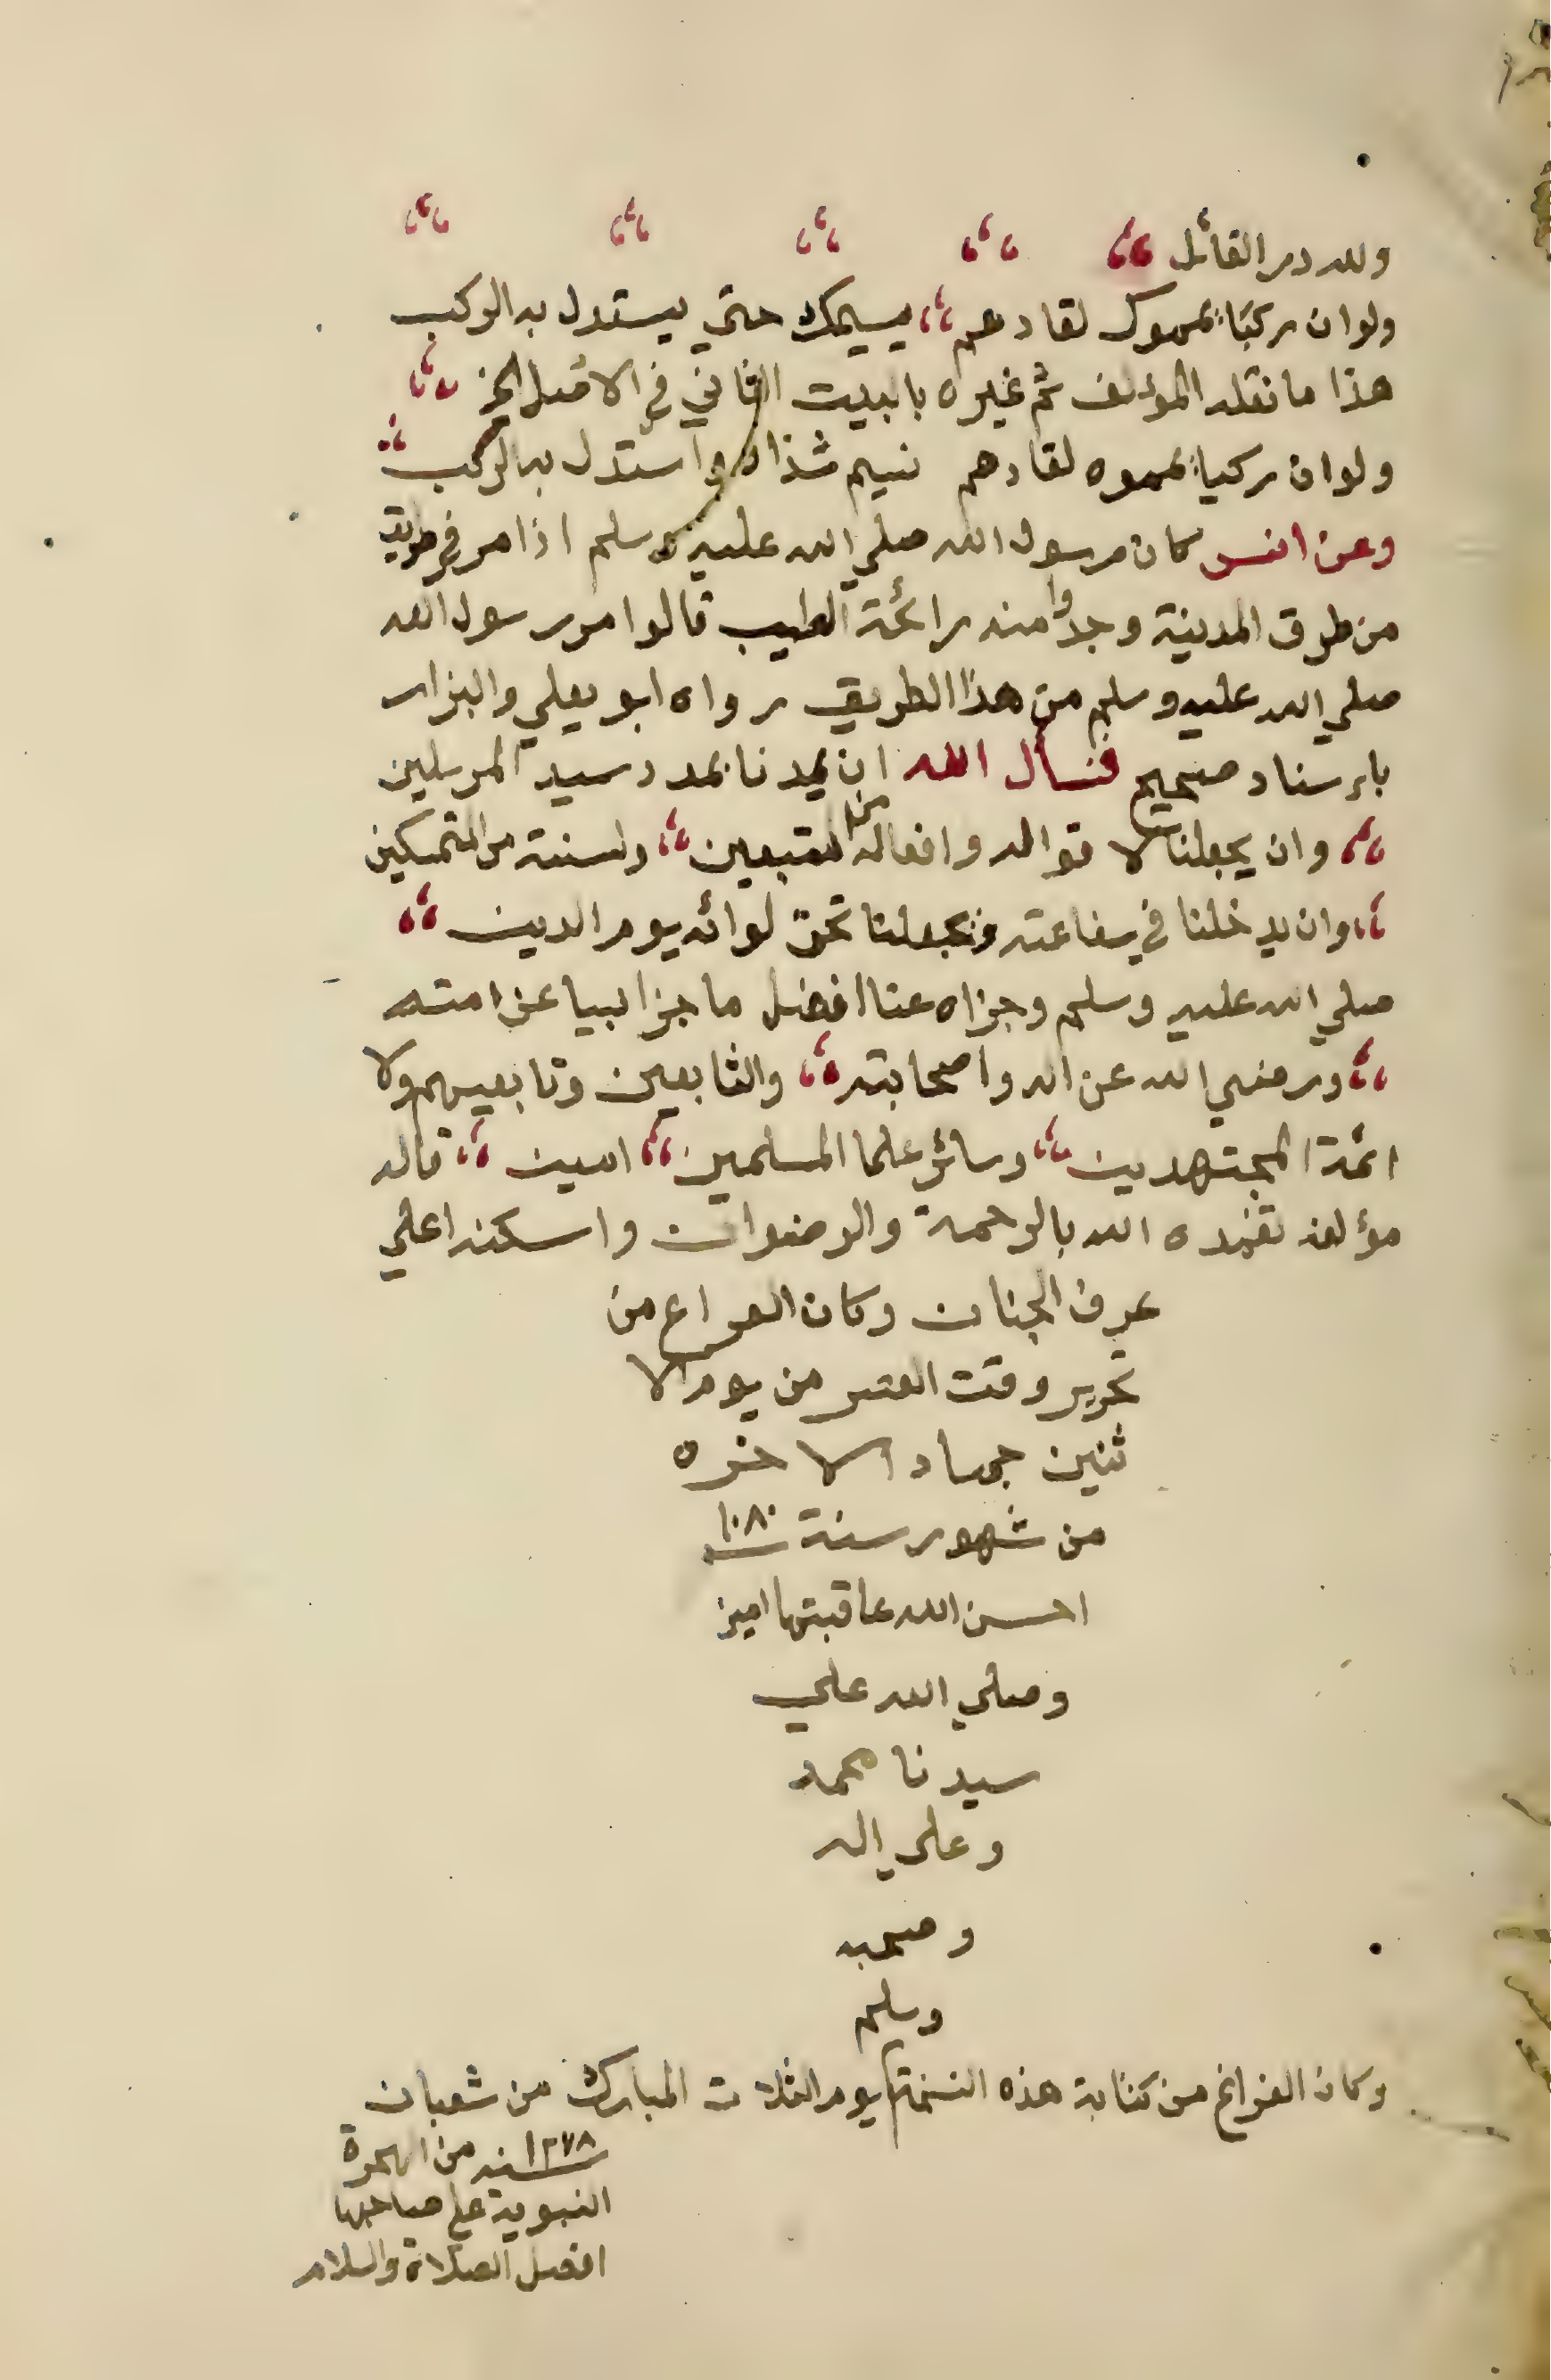 ولله در القائل
ولو ان ركبًا يمموك لقادهم نسيمك حتي يستدل به الركب
هذا ما نقله المؤلف ثم غيره بالبيت الثاني في الاصل الخ
ولو ان ركبا يمموه لقادهم نسيم شذاه واستدل به الركب
وعن انس كان رسول الله صلي الله عليه وسلم اذا مر في طريق
من طرق المدينة وجدوا منه رائحة الطيب قالوا مر رسول الله
صلي الله عليه وسلم من هذا الطريق رواه ابو يعلي والبزار
باسناد صحيح فنسأل الله ان يمدنا بمدد سيد المرسلين
وان يجعلنا لاقواله وافعاله من المتبعين ولسنته من المتمسكين
وان يدخلنا في شفاعته ويجعلنا تحت لوائه يوم الدين
صلي الله عليه وسلم وجزاه عنا افضل ما جزا نبيا عن امته
ورضي الله عن اله واصحابته والتابعين وتابعيهم ولا
ائمة المجتهدين وسائر علما المسلمين امين قاله
مؤلفه تغمده الله بالرحمة والرضوان واسكنه اعلي
غرف الجنان وكان الفراغ من
تحرير وقت العصر من يوم الا
ثنين جماد الاخره
من شهور سنة ١٠٨٠
احسن الله عاقبتها امين
وصلي الله علي
سيدنا محمد
وعلي اله
وصحبه
وسلم
وكان الفراغ من كتابة هذه النسخة يوم الثلاث المبارك من شعبان
سنه ١٢٧٨ من الهجرة
النبوية علي صاحبها
افضل الصلاة والسلام